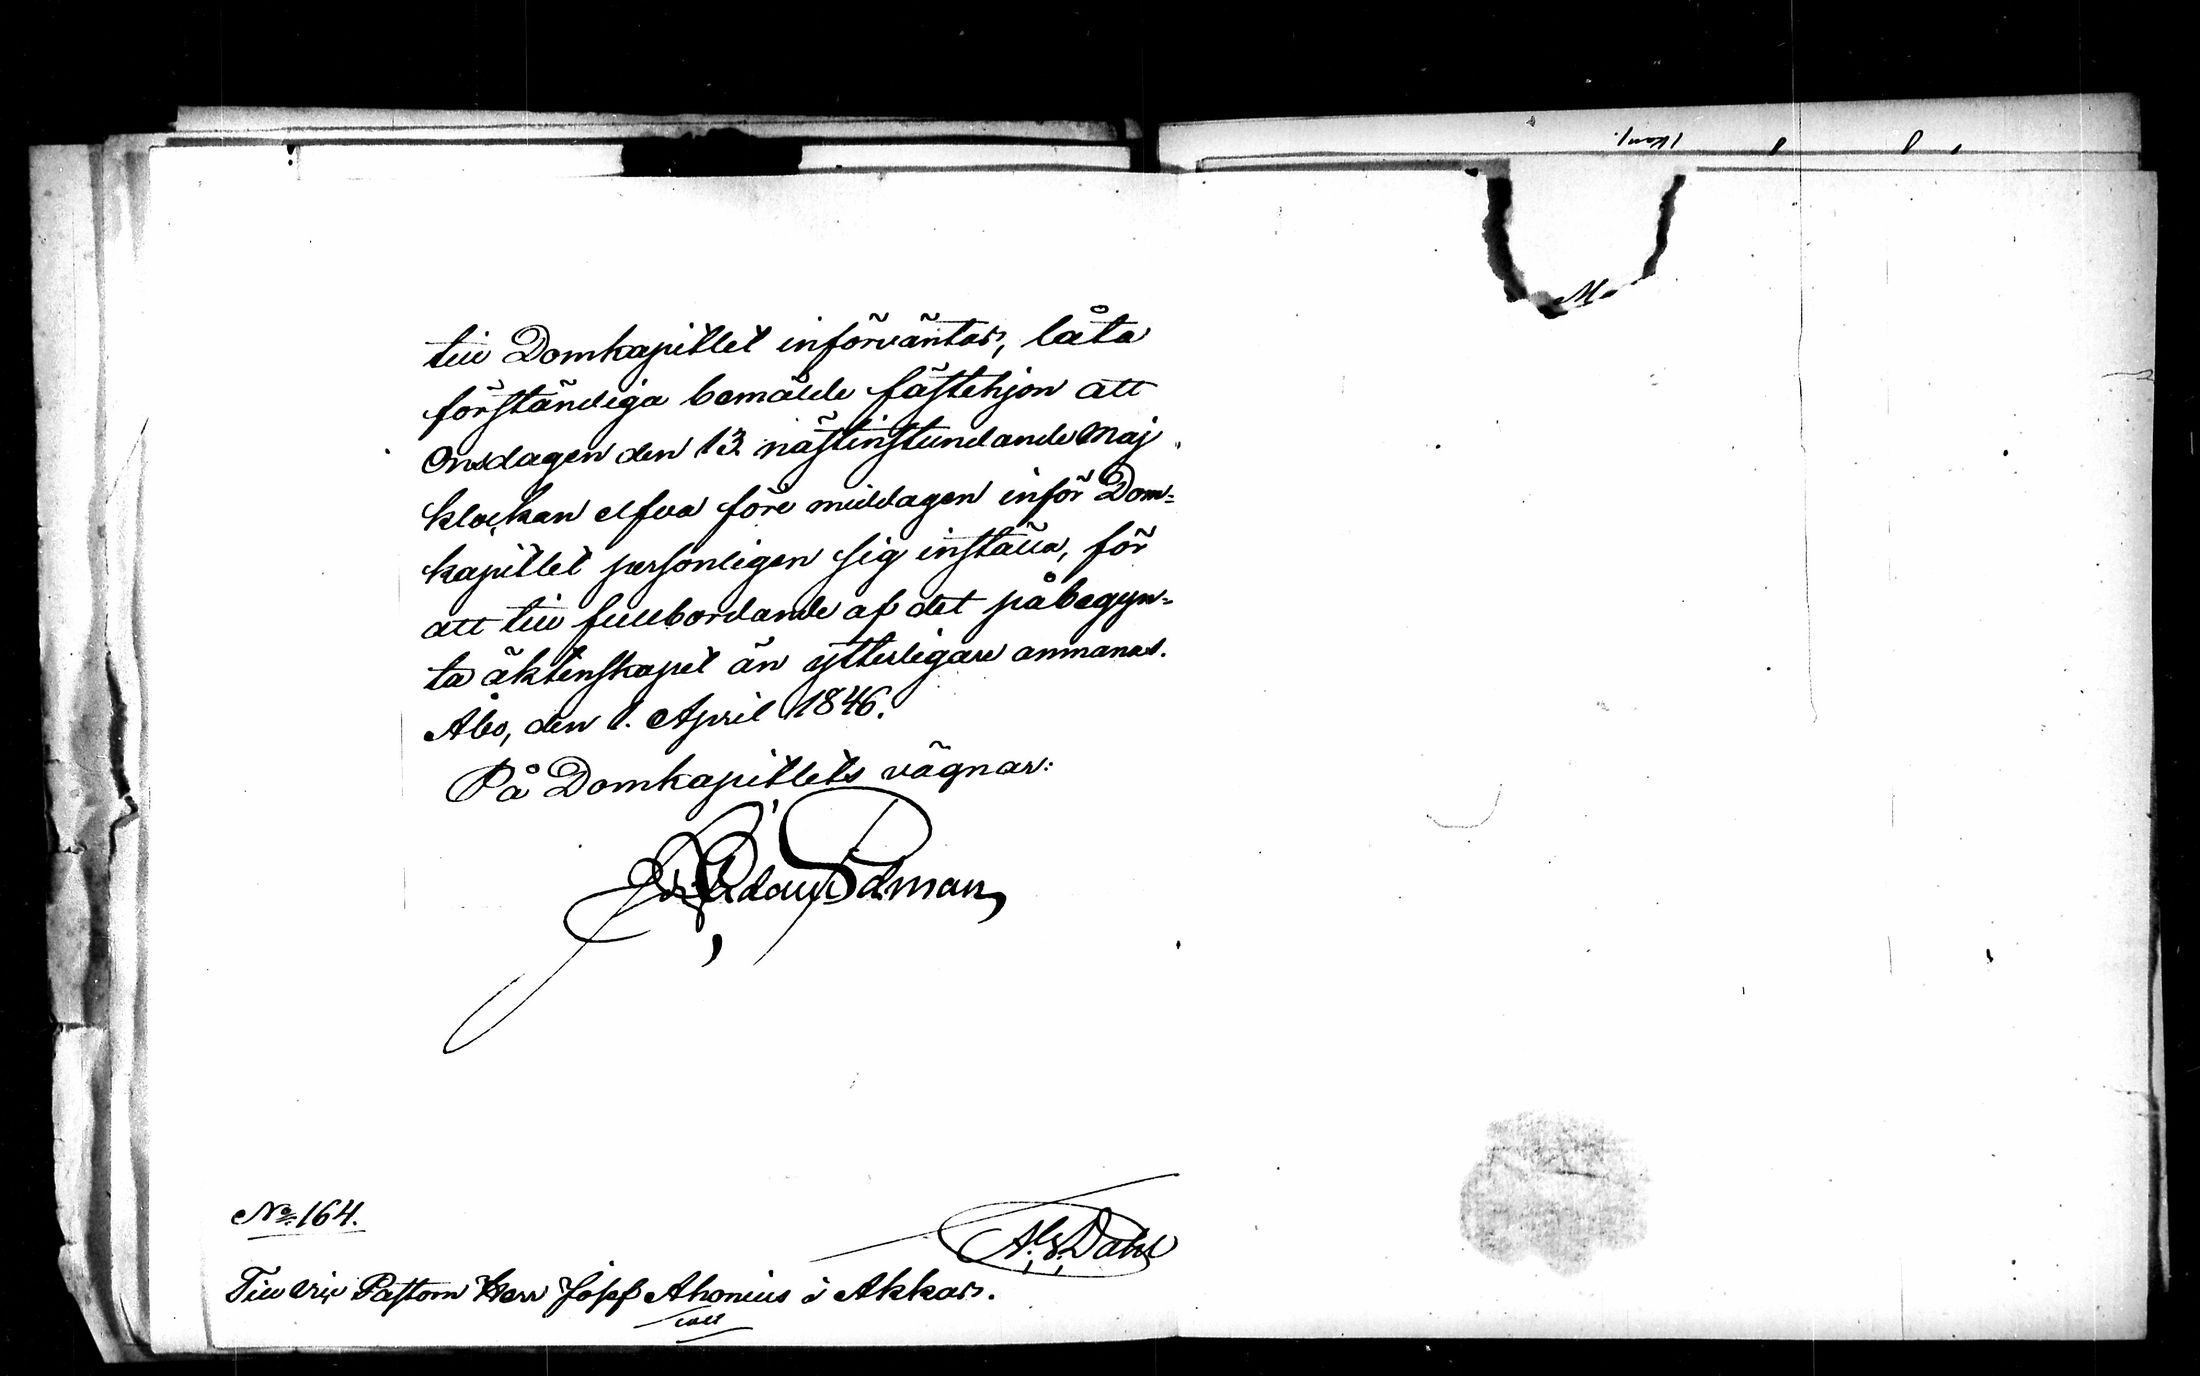 till Domkapitlet införväntas, låta
förständiga bemälde fästehjon att
Onsdagen den 13. nästinstundande Maj
klockan elfva före middagen inför Dom=
kapitlet personligen sig inställa, för
att till fullbordande af det påbegyn=
ta äktenskapet än ytterligare anmanas.
Åbo, den 1. April 1846.
På Domkapitlets vägnar:
Edman
No. 164.
A. G. Dahl
Till Pastorn Herr Josef Ahonius i Akkas.
coll